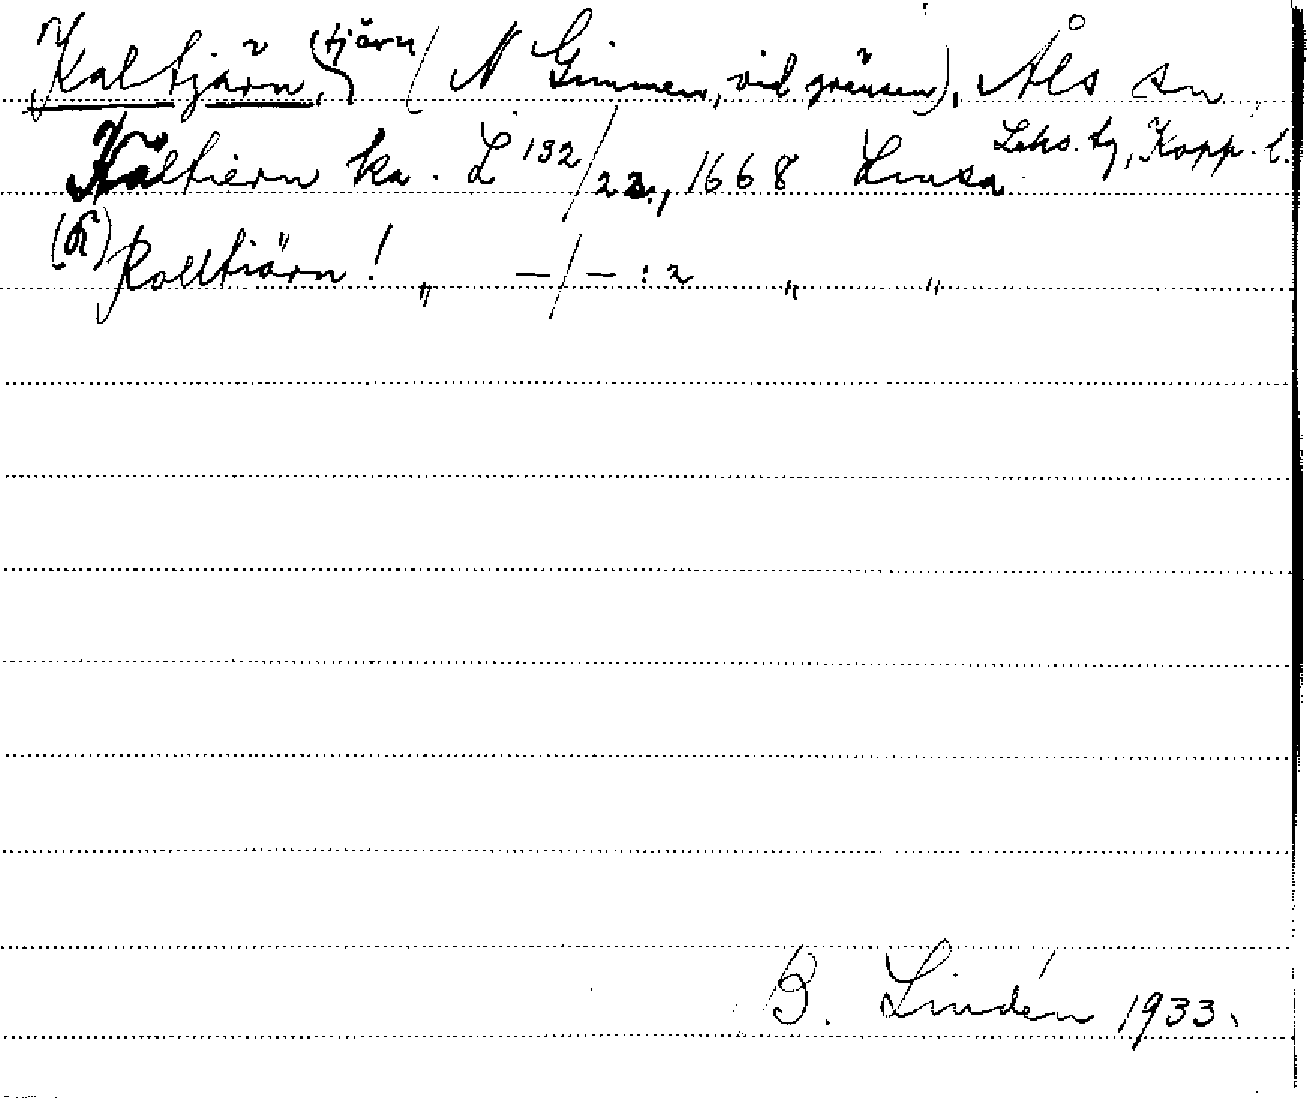 Kaltjärn, (tjärn) (N Gimmen, vid gränsen), Åls sn,
Leks. tg, Kopp. l.
Kaltiern ka. L 132/22, 1668 Linsa
(K) Kolltiärn! „ —/— : 2 „ „
B. Lindén 1933.